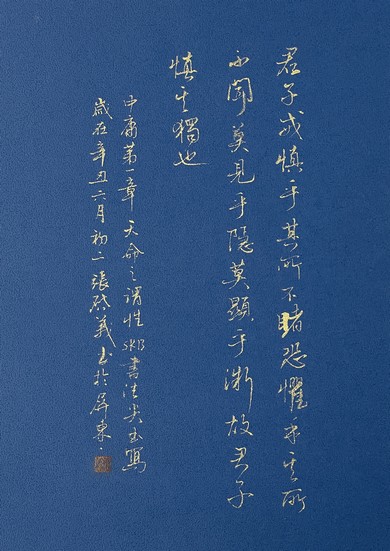 君子戒慎乎其所不睹恐懼乎其所
不聞莫見乎隱莫顯乎微故君子
慎其獨也
中庸第一章天命之謂性SKB書法尖書寫
歲在辛丑六月初二張啓義書於屏東